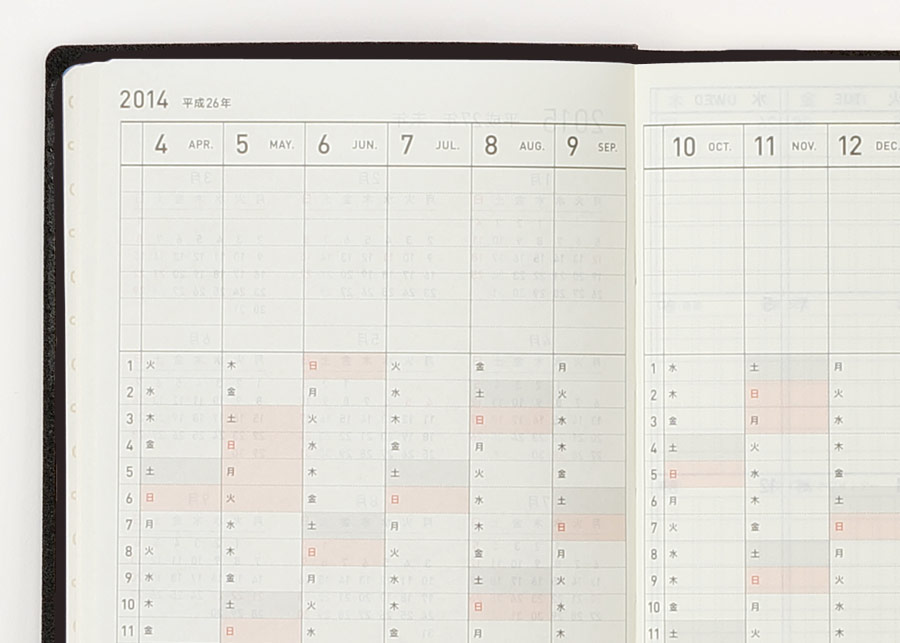 2014 平成26年
4 APR. 5 MAY. 6 JUN. 7 JUL. 8 AUG. 9 SEP. 10 OCT. 11 NOV. 12 DEC.
1 火 木 日 火 金 月 1 水 土 月
2 水 金 月 水 土 火 2 木 日 火
3 木 土 火 木 日 水 3 金 月 水
4 金 日 水 金 月 木 4 土 火 木
5 土 月 木 土 火 金 5 日 水 金
6 日 火 金 日 水 土 6 月 木 土
7 月 水 土 月 木 日 7 火 金 日
8 火 木 日 火 金 月 8 水 土 月
9 水 金 月 水 土 火 9 木 日 火
10 木 土 火 木 日 水 10 金 月 水
11 金 日 水 金 月 木 11 土 火 木